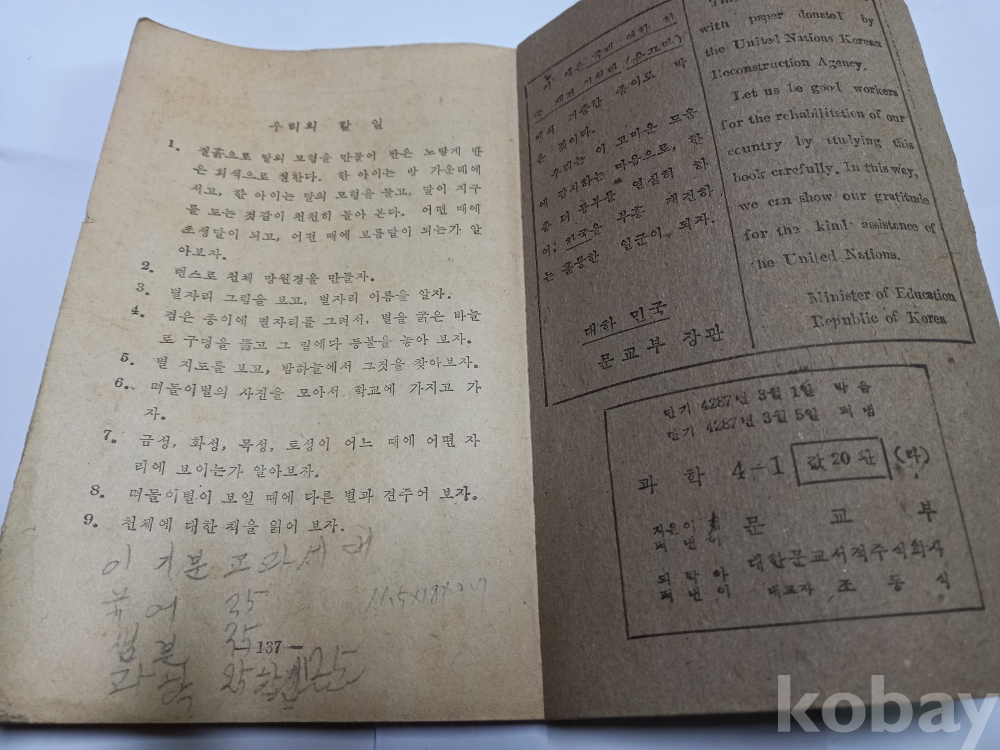 우리의 할 일
1. 결흙으로 달의 모형을 만들어 반은 노랗게 반
은 회색으로 칠한다. 한 아이는 방 가운데에
서고, 한 아이는 달의 모형을 들고, 달이 지구
를 도는 것같이 천천히 돌아 본다. 어떤 때에
초생달이 되고, 어떤 때에 보름달이 되는가 알
아보자.
2. 렌스로 천체 망원경을 만들자.
3. 별자리 그림을 보고, 별자리 이름을 알자.
4. 검은 종이에 별자리를 그려서, 별을 굵은 바늘
로 구멍을 뚫고 그 밑에다 등불을 놓아 보자.
5. 별 지도를 보고, 밤하늘에서 그것을 찾아보자.
6. 떠돌이별의 사진을 모아서 학교에 가지고 가
자.
7. 금성, 화성, 목성, 토성이 어느 때에 어떤 자
리에 보이는가 알아보자.
8. 떠돌이별이 보일 때에 다른 별과 견주어 보자.
9. 천체에 대한 책을 읽어 보자.
35
35
— 137 —
과학
이 책은 국제 연합
재건 기구
에서 기증한 종이로 박
은 것이다.
우리는 이 고마운 도움
에 감사하는 마음으로, 한
층 더 공부를 열심히 하
여, 한국을 부흥 재건하
는 훌륭한 일군이 되자.
대한 민국
문교부 장관
with paper donated by
the United Nations Korean
Reconstruction Agency.
Let us be good workers
for the rehabilitation of our
country by studying this
book carefully. In this way,
we can show our gratitude
for the kind assistance of
the United Nations.
Minister of Education
Republic of Korea
단기 4287년 3월 1일 박음
단기 4287년 3월 5일 펴냄
과학 4-1 값20환 (라)
지은이 펴낸이 문교부
대한문교서적주식회사
대표자 조동식
kobay